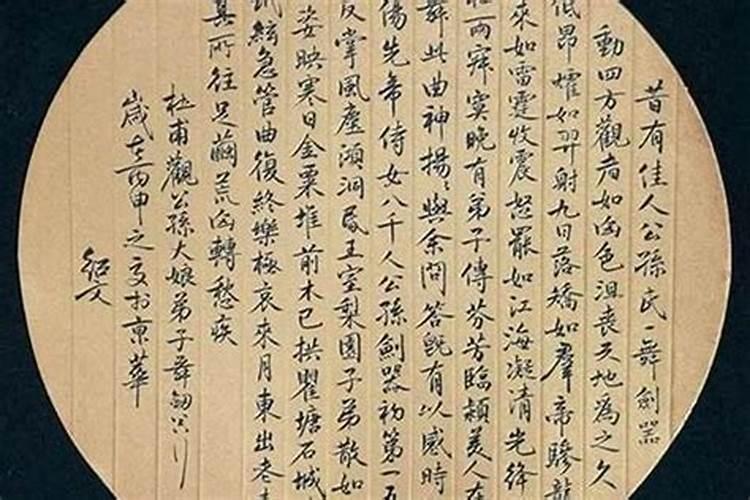 昔有佳人公孫氏一舞劍器
動四方觀者如山色沮喪天地為之久
低昂燿如羿射九日落矯如羣帝驂龍
來如雷霆收震怒罷如江海凝清光絳
兩寂寞晚有弟子傳芬芳臨潁美人在
舞此曲神揚〻與余問答既有以感時
傷先帝侍女八千人公孫劍器初第一五
反掌風塵澒洞昏王室梨園子弟散如
姿映寒日金粟堆前木已拱瞿塘石城
絃急管曲復終樂極哀來月東出老夫
其所往足繭荒山轉愁疾
杜甫觀公孫大娘弟子舞劍器行
歲在丙申之夏於京華
紹文